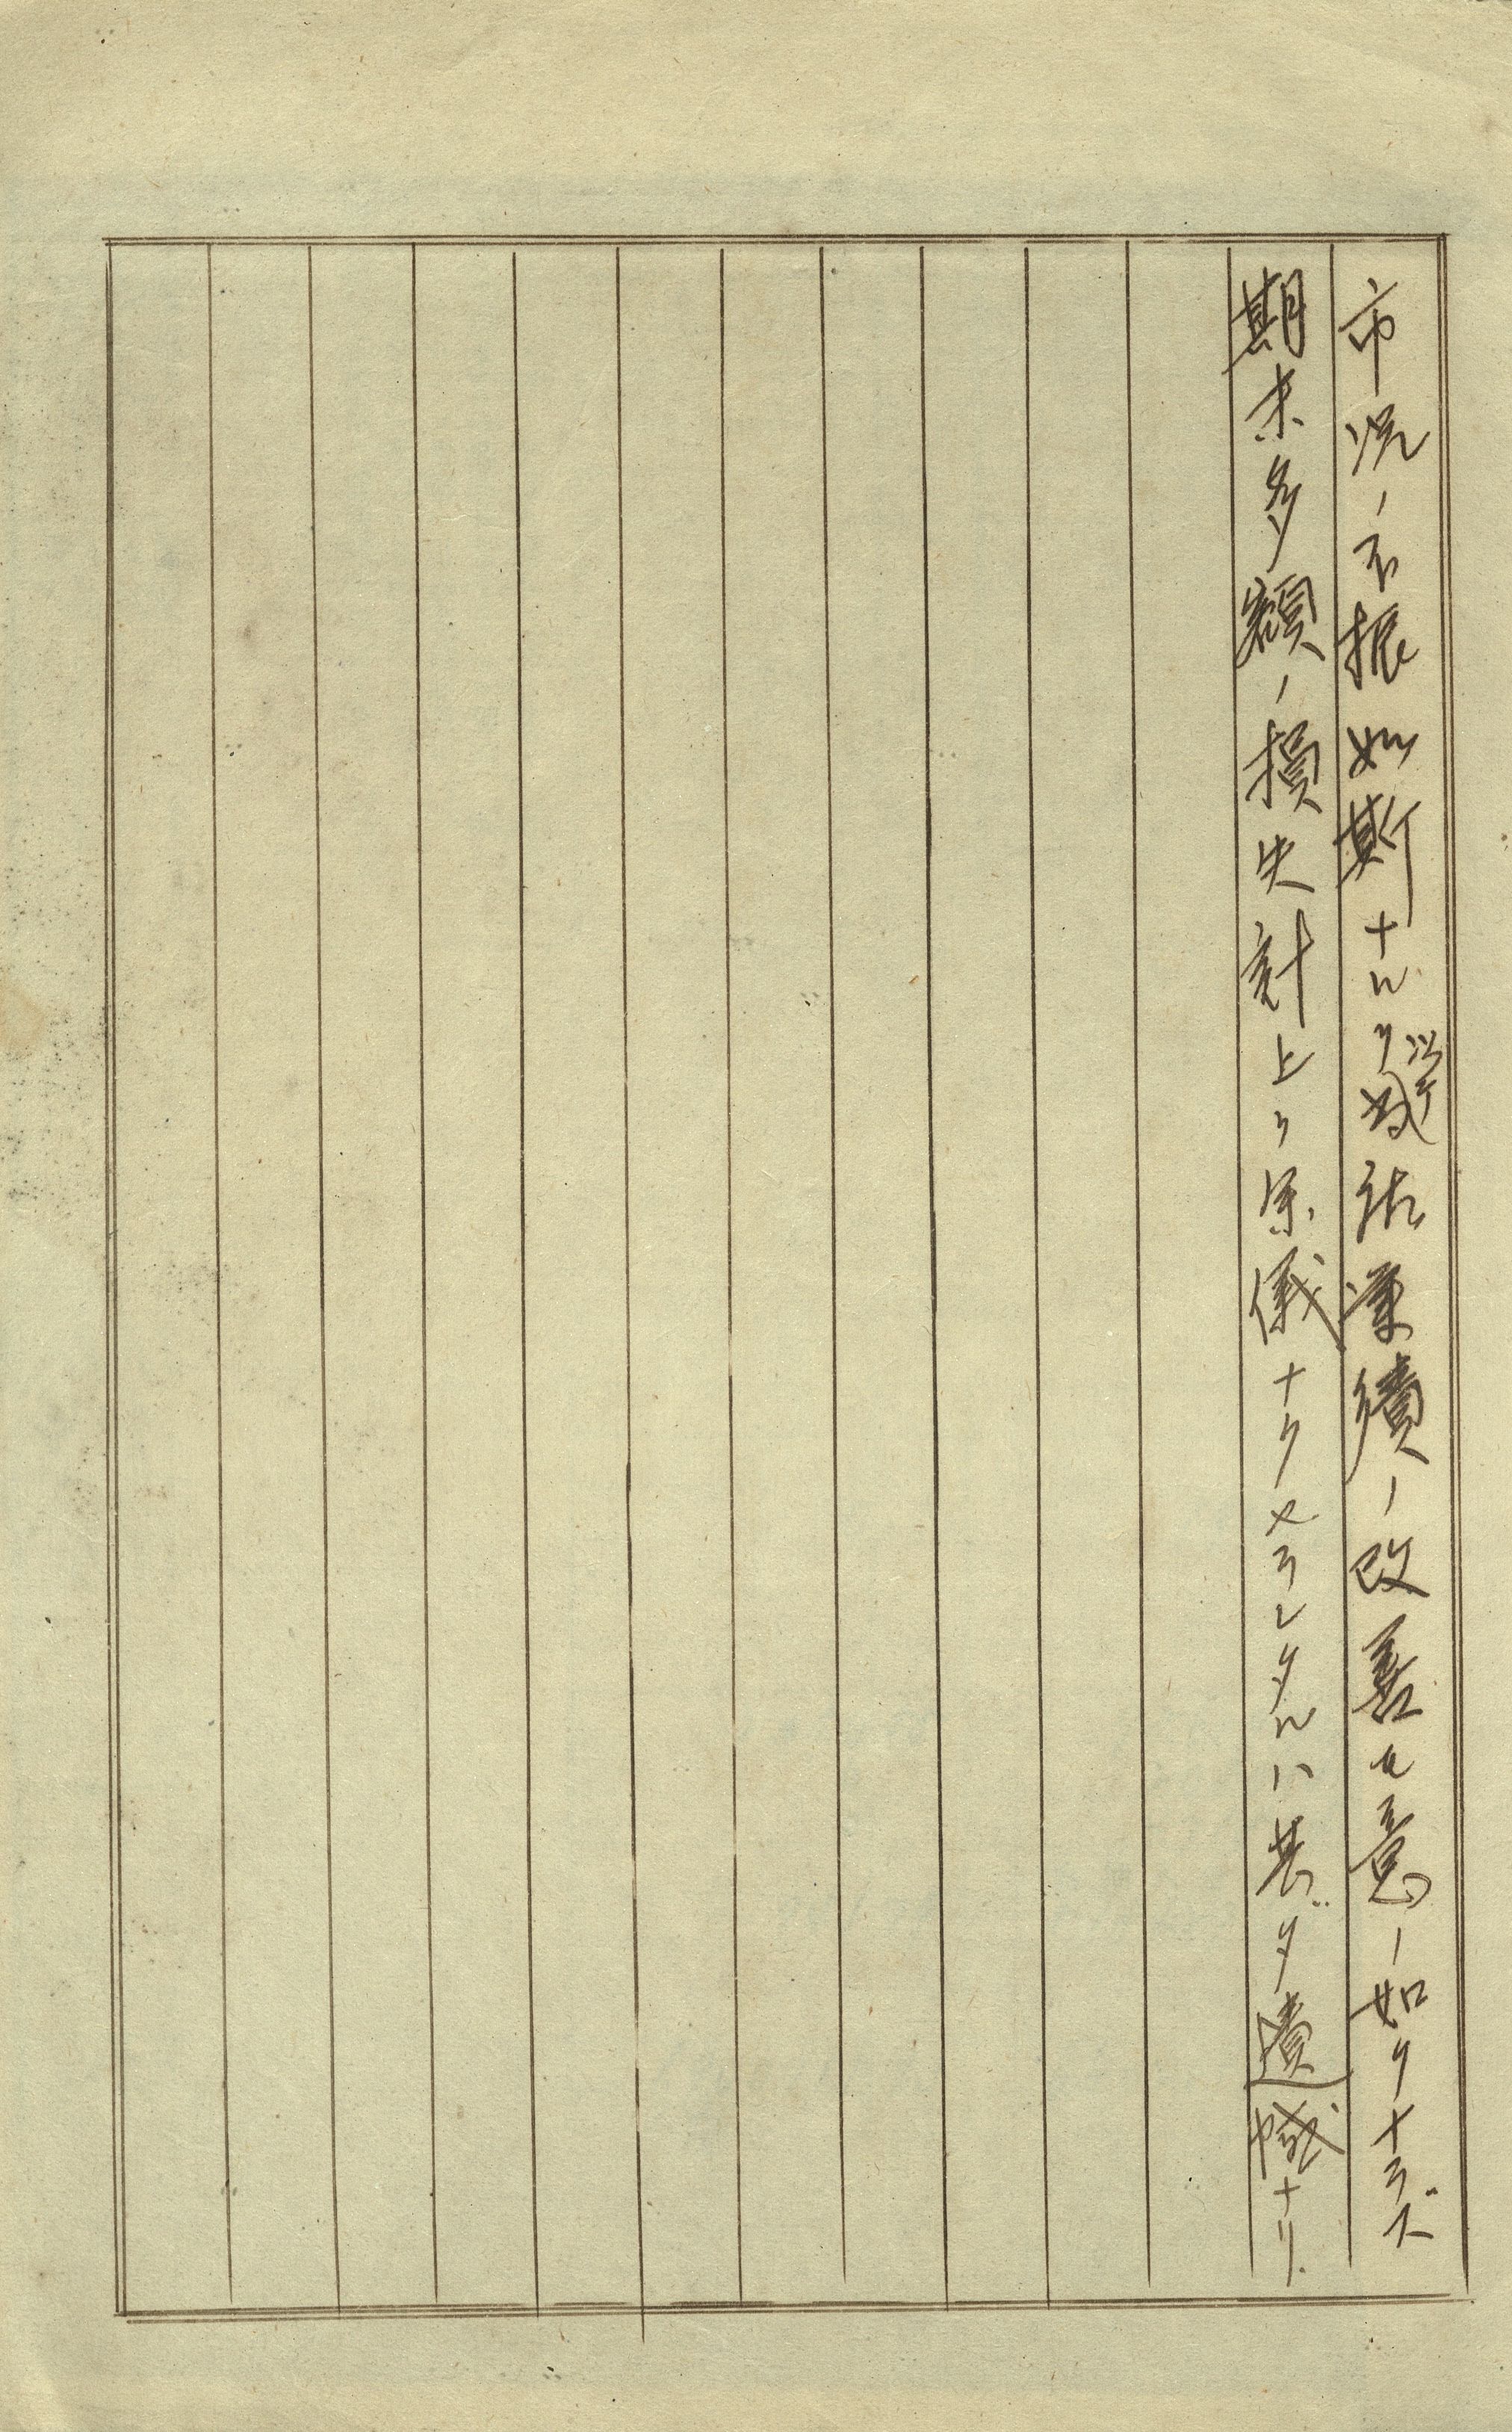 市況ノ不振如斯ナルヲ以テ弊社業績ノ改善モ意ノ如クナラズ
期末多額ノ損失計上ヲ余儀ナクセラレタルハ甚ダ遺憾ナリ